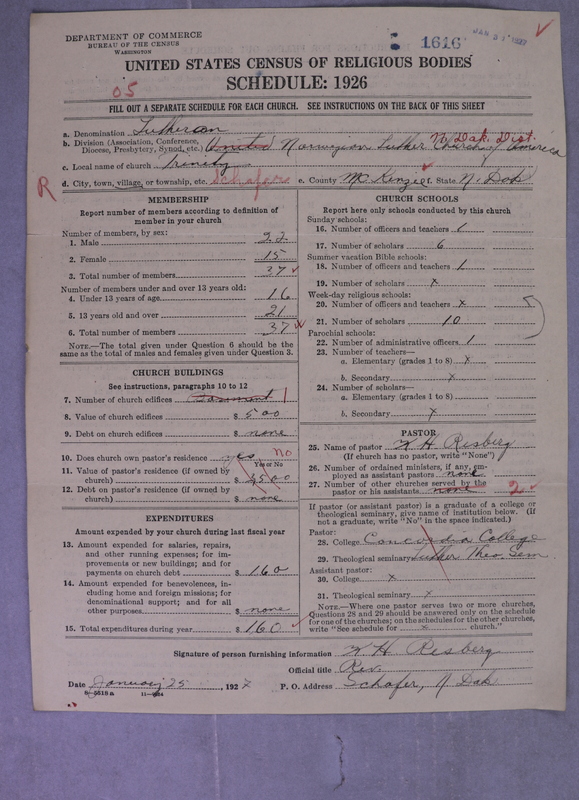 DEPARTMENT OF COMMERCE
BUREAU OF THE CENSUS
WASHINGTON
1616
JAN 31 1927
UNITED STATES CENSUS OF RELIGIOUS BODIES
SCHEDULE: 1926
05
FILL OUT A SEPARATE SCHEDULE FOR EACH CHURCH. SEE INSTRUCTIONS ON THE BACK OF THIS SHEET
a. Denomination Lutheran
b. Division (Association, Conference, Diocese, Presbytery, Synod, etc.) United Norwegian Luther Church of America N. Dak. Dist.
c. Local name of church Trinity
R
d. City, town, village, or township, etc. Schafer e. County McKenzie f. State N. Dak
MEMBERSHIP
Report number of members according to definition of
member in your church
Number of members, by sex:
1. Male 22
2. Female 15
3. Total number of members 37
Number of members under and over 13 years old:
4. Under 13 years of age 16
5. 13 years old and over 21
6. Total number of members 37
NOTE.—The total given under Question 6 should be the
same as the total of males and females given under Question 3.
CHURCH BUILDINGS
See instructions, paragraphs 10 to 12
7. Number of church edifices 1
8. Value of church edifices $ 500
9. Debt on church edifices $ none
10. Does church own pastor's residence yes No
Yes or No
11. Value of pastor's residence (if owned by
church) $ 2500
12. Debt on pastor's residence (if owned by
church) $ none
EXPENDITURES
Amount expended by your church during last fiscal year
13. Amount expended for salaries, repairs,
and other running expenses; for im-
provements or new buildings; and for
payments on church debt $ 160
14. Amount expended for benevolences, in-
cluding home and foreign missions; for
denominational support; and for all
other purposes $ none
15. Total expenditures during year $ 160
CHURCH SCHOOLS
Report here only schools conducted by this church
Sunday schools:
16. Number of officers and teachers 1
17. Number of scholars 6
Summer vacation Bible schools:
18. Number of officers and teachers 1
19. Number of scholars x
Week-day religious schools:
20. Number of officers and teachers x
21. Number of scholars 10
Parochial schools:
22. Number of administrative officers 1
23. Number of teachers—
a. Elementary (grades 1 to 8) x
b. Secondary x
24. Number of scholars—
a. Elementary (grades 1 to 8)
b. Secondary x
PASTOR
25. Name of pastor H Risberg
(If church has no pastor, write "None")
26. Number of ordained ministers, if any, em-
ployed as assistant pastors none
27. Number of other churches served by the
pastor or his assistants none 2
If pastor (or assistant pastor) is a graduate of a college or
theological seminary, give name of institution below. (If
not a graduate, write "No" in the space indicated.)
Pastor:
28. College Concordia College
29. Theological seminary Luther Theo Sem.
Assistant pastor:
30. College x
31. Theological seminary x
NOTE.—Where one pastor serves two or more churches,
Questions 28 and 29 should be answered only on the schedule
for one of the churches; on the schedules for the other churches,
write "See schedule for x church."
Signature of person furnishing information H Risberg
Official title Rev.
Date January 25, 1927 P. O. Address Schafer, N Dak
8—5518 a 11—924